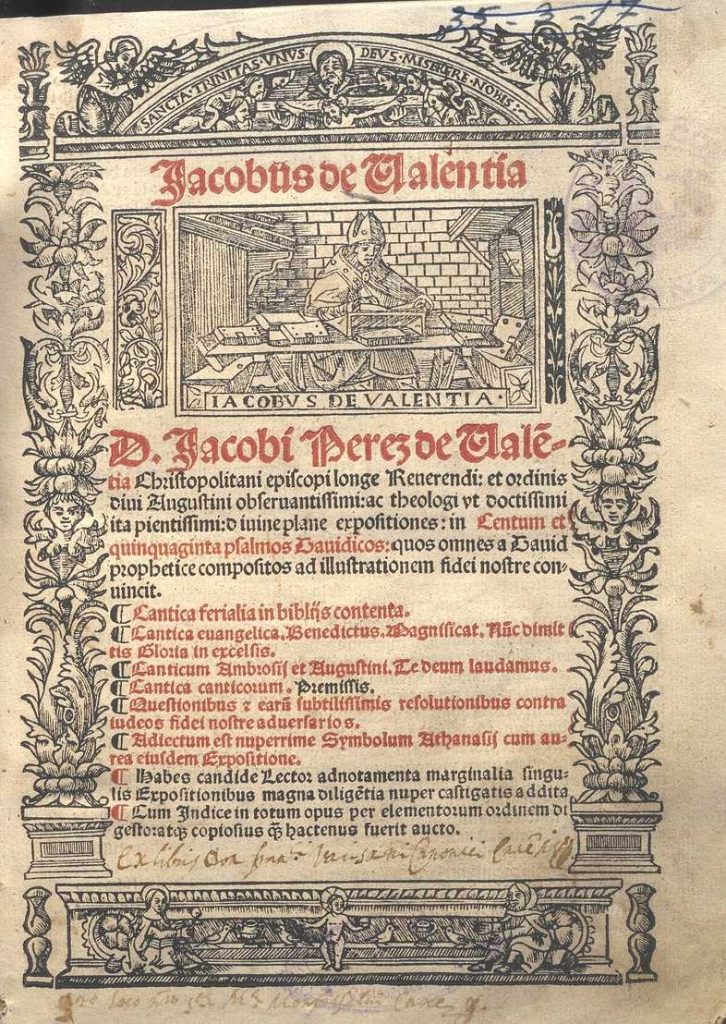 35-3-17
SANCTA·TRINITAS·VNVS DEVS·MISERERE·NOBIS:
Jacobus de Ualentia
IACOBVS DE VALENTIA·
D. Jacobi Perez de Ualē-
tia Christopolitani episcopi longe Reuerendi: et ordinis
diui Augustini obseruantissimi: ac theologi vt doctissimi
ita pientissimi: d iuine plane expositiones: in Centum et
quinquaginta psalmos Dauidicos: quos omnes a Dauid
prophetice compositos ad illustrationem fidei nostre con-
uincit.
¶ Cantica ferialia in biblijs contenta.
¶ Cantica euangelica. Benedictus. Magnificat. Nūc dimit
tis Gloria in excelsis.
¶ Canticum Ambrosij et Augustini. Te deum laudamus.
¶ Cantica canticorum. Premissis.
¶ Questionibus ⁊ earū subtilissimis resolutionibus contra
iudeos fidei nostre aduersarios.
¶ Adiectum est nuperrime Symbolum Athanasij cum au-
rea eiusdem Expositione.
¶ Habes candide Lector adnotamenta marginalia singu-
lis Expositionibus magna diligētia nuper castigatis addita
¶ Cum Indice in totum opus per elementorum ordinem di
gestoratqꝫ copiosius qꝫ̄ hactenus fuerit aucto.
Ex libris